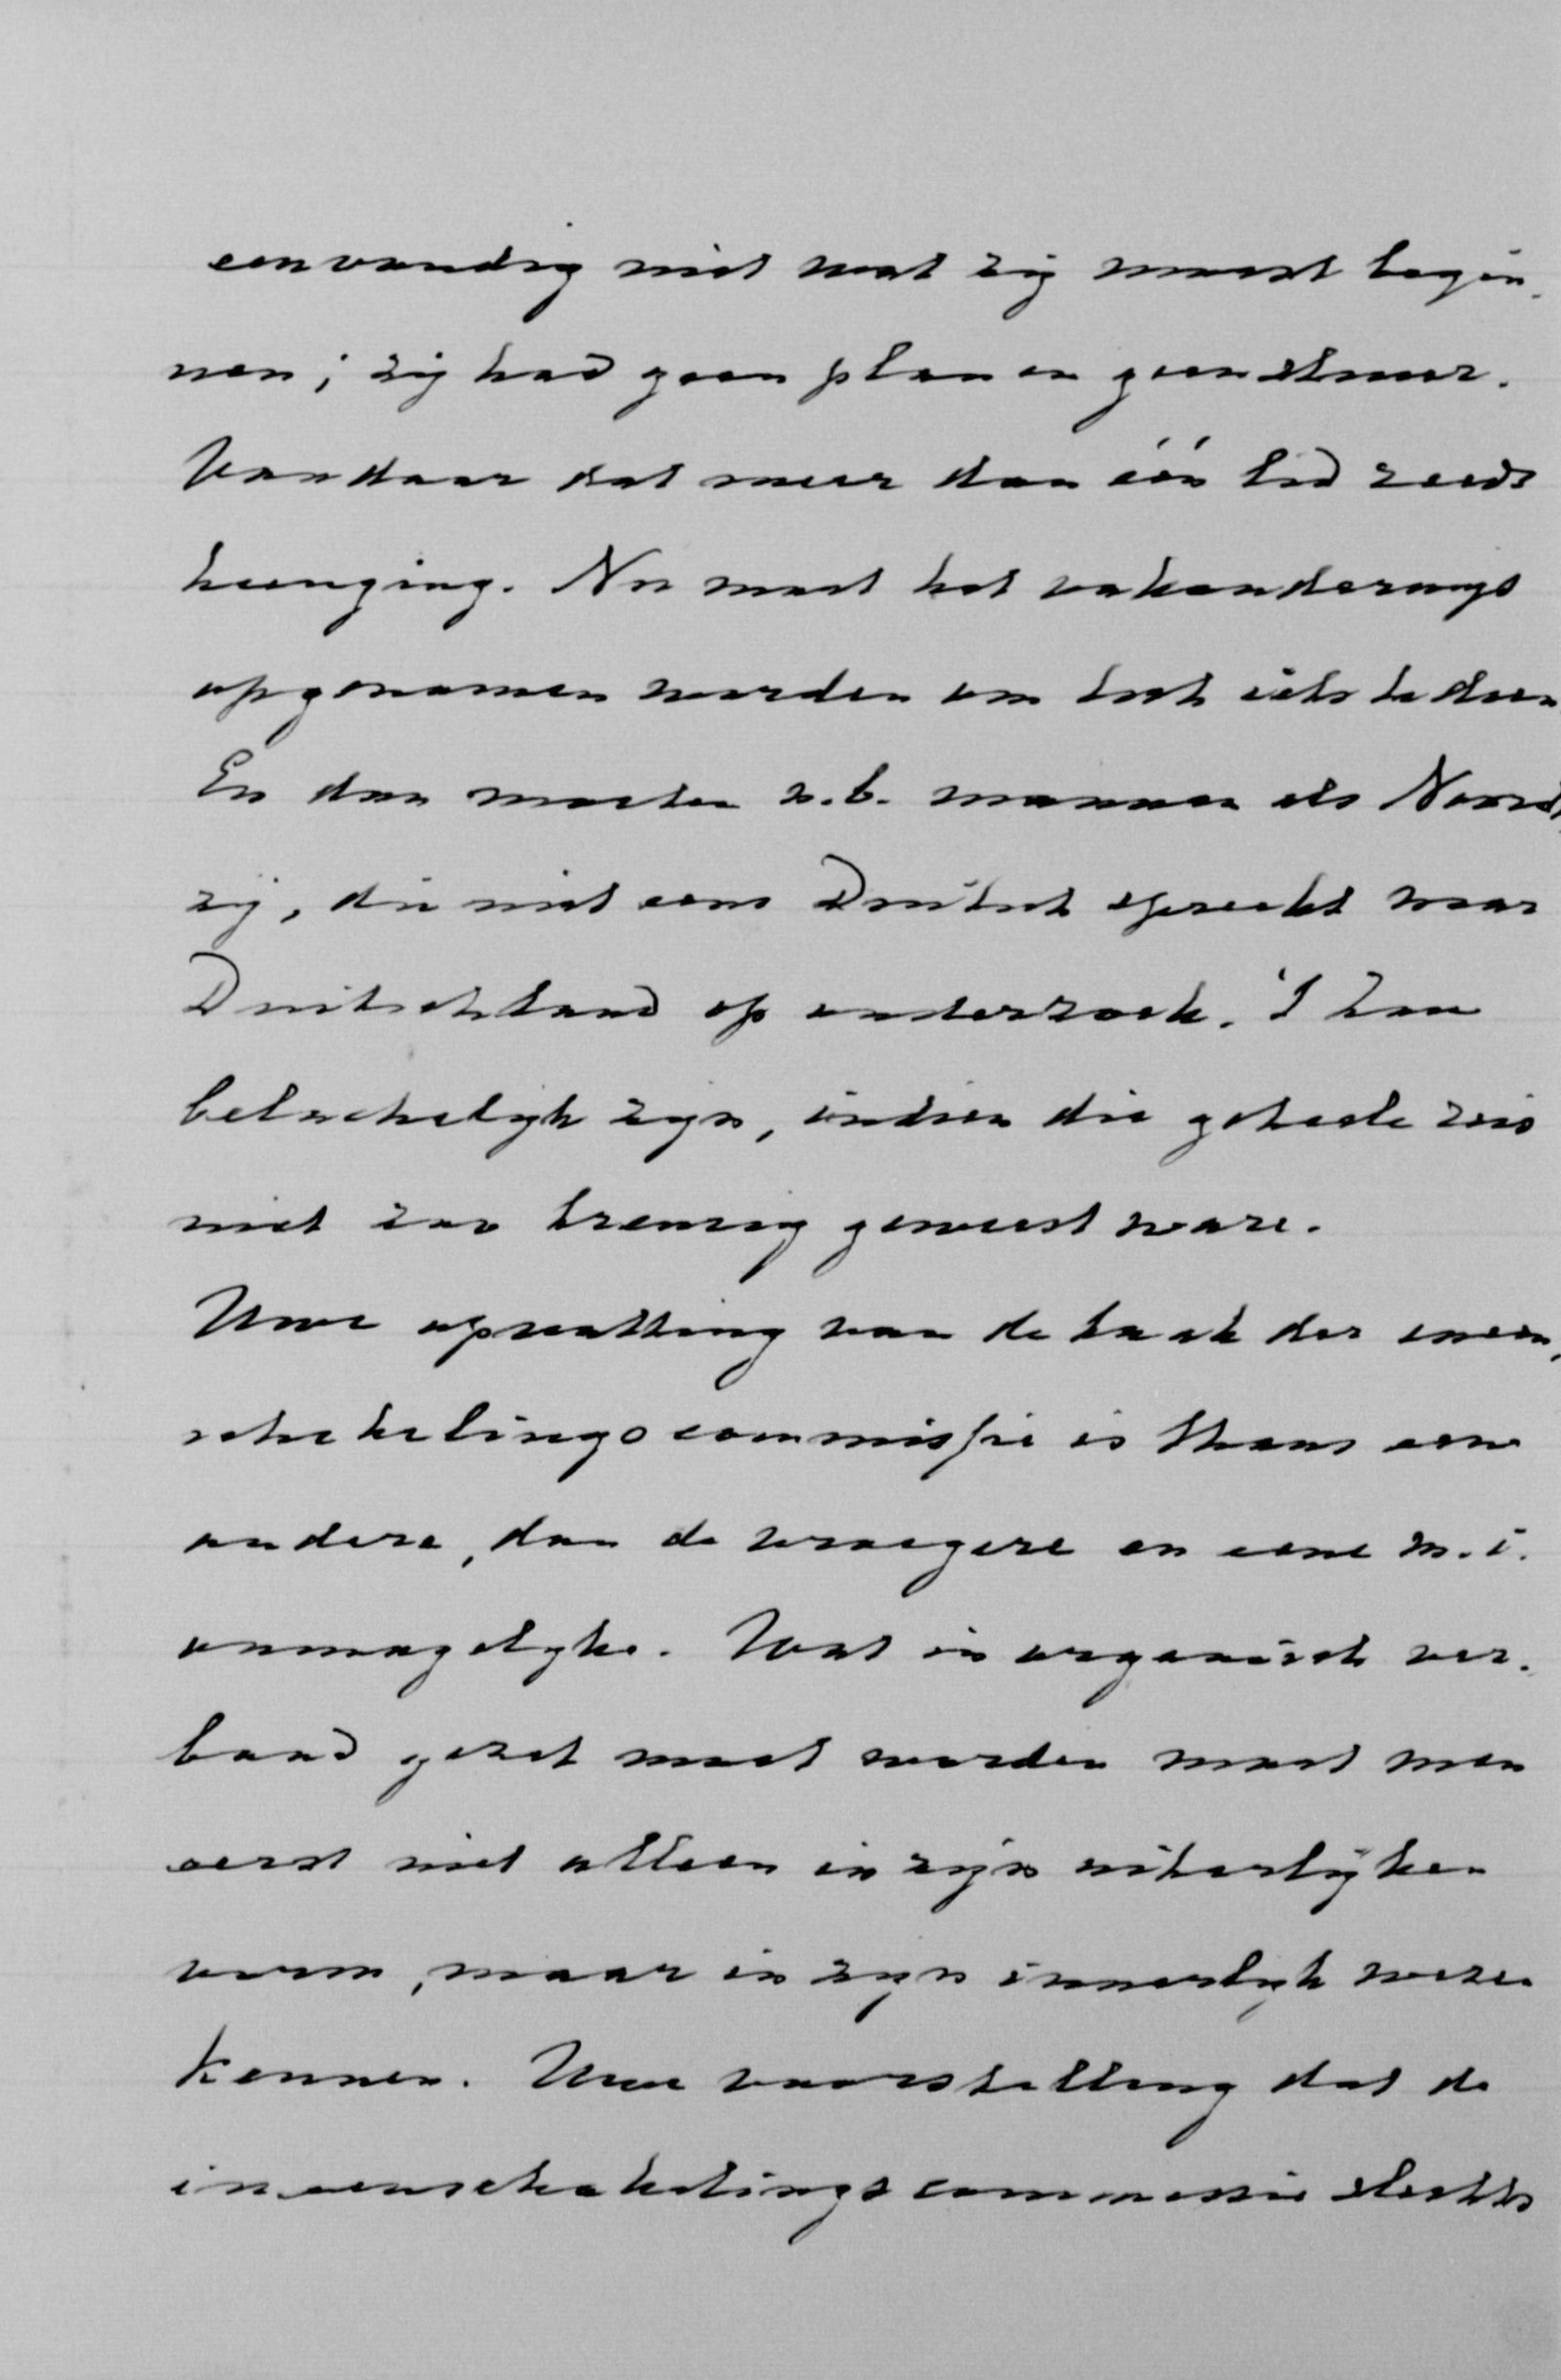 eenvoudig niet wat zij moest begin-
nen; zij had geen plan en geen stuur.
Vandaar dat meer dan één lid reeds
heenging. Nu moet het vakonderwijs
opgenomen worden om toch iets te doen
En dan moeten n.b. mannen als Noord,
zij, die niet eens Duitsch spreekt naar
Duitschland op onderzoek. 't Zou
belachelijk zijn, indien die geheele reis
niet zoo treurig geweest ware.
Uwe opvatting van de taak der ineen,
schakelingscommissie is thans eene
andere, dan de vroegere en eene m.i.
onmogelijke. Wat in organisch ver-
band gezet moet worden moet men
eerst niet alleen in zijn uiterlijken
vorm, maar in zijn innerlijk wezen
kennen. Uwe voorstelling dat de
ineenschakelingscommissie slechts